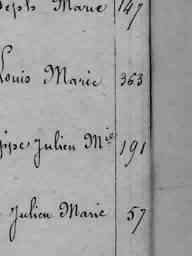 Marie 147
Louis Marie 363
Julien Mie 191
Julien Marie 57